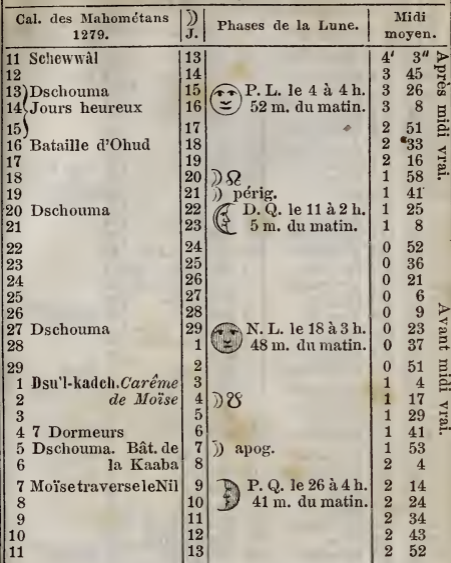 Cal. des Mahométans 1279. | ☽ J. | Phases de la Lune. | Midi moyen.
11 Schewwàl | 13 | | 4' 3"
12 | 14 | | 3 45
13 Dschouma | 15 | P. L. le 4 à 4 h. | 3 26
14 Jours heureux | 16 | 52 m. du matin. | 3 8
15 | 17 | | 2 51
16 Bataille d'Ohud | 18 | | 2 33
17 | 19 | | 2 16
18 | 20 | ☽ ☊ | 1 58
19 | 21 | ☽ périg. | 1 41
20 Dschouma | 22 | D. Q. le 11 à 2 h. | 1 25
21 | 23 | 5 m. du matin. | 1 8
22 | 24 | | 0 52
23 | 25 | | 0 36
24 | 26 | | 0 21
25 | 27 | | 0 6
26 | 28 | | 0 9
27 Dschouma | 29 | N. L. le 18 à 3 h. | 0 23
28 | 1 | 48 m. du matin. | 0 37
29 | 2 | | 0 51
1 Dsu'l-kadeh. Carême | 3 | | 1 4
2 de Moïse | 4 | ☽ ☋ | 1 17
3 | 5 | | 1 29
4 7 Dormeurs | 6 | | 1 41
5 Dschouma. Bât. de | 7 | ☽ apog. | 1 53
6 la Kaaba | 8 | | 2 4
7 Moïse traverse le Nil | 9 | P. Q. le 26 à 4 h. | 2 14
8 | 10 | 41 m. du matin. | 2 24
9 | 11 | | 2 34
10 | 12 | | 2 43
11 | 13 | | 2 52
Après midi vrai.
Avant midi vrai.